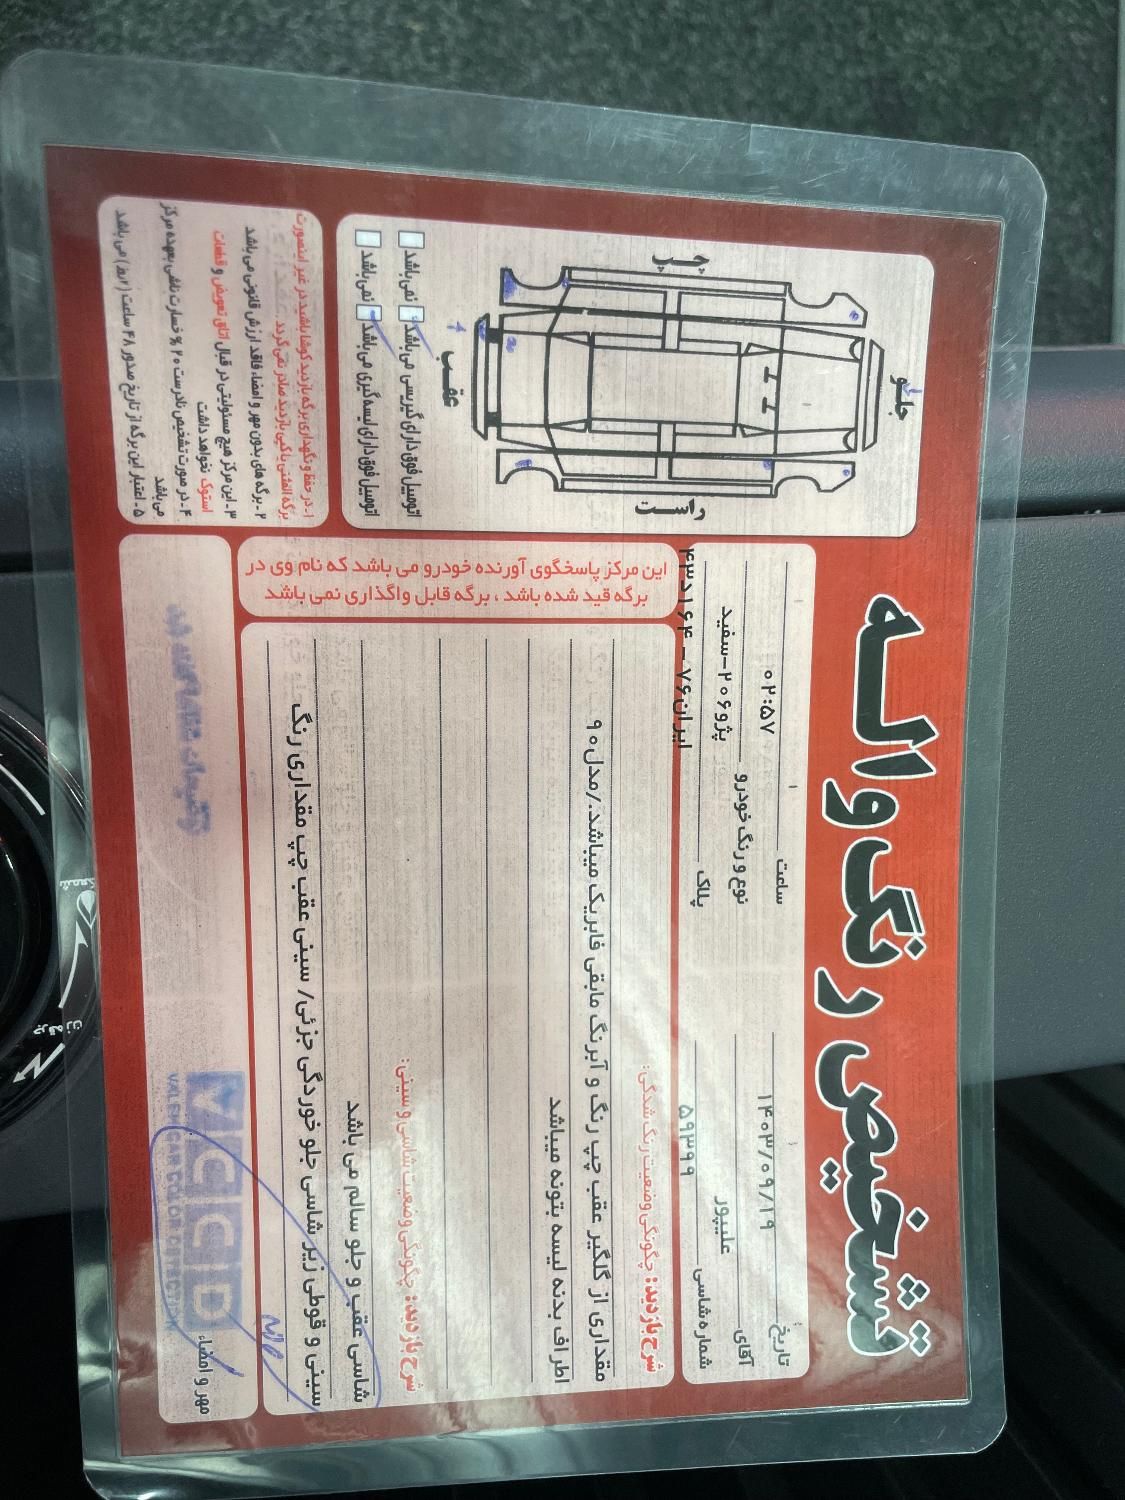 تشخیص رنگ واله
تاریخ ۱۴۰۳/۰۹/۱۹ ساعت ۰۲:۵۷
آقای علیپور نوع و رنگ خودرو پژو۲۰۶-سفید
شماره شاسی ۵۹۳۹۹ پلاک ایران۷۶ - ۱۶۴د۴۳
شرح بازدید: چگونگی وضعیت رنگ شدگی:
مقداری از گلگیر عقب چپ رنگ و آبرنگ مابقی فابریک میباشد./مدل۹۰
اطراف بدنه لیسه بتونه میباشد
شرح بازدید: چگونگی وضعیت شاسی و سینی:
شاسی عقب و جلو سالم می باشد
سینی و قوطی زیر شاسی جلو خوردگی جزئی/ سینی عقب چپ مقداری رنگ
این مرکز پاسخگوی آورنده خودرو می باشد که نام وی در
برگه قید شده باشد ، برگه قابل واگذاری نمی باشد
مهر و امضاء
VCCD
VALEH CAR COLOR DETECTION
جلو
چپ
راست
عقب
اتومبیل فوق دارای گیربسی می باشد نمی باشد
اتومبیل فوق دارای لیسه گیری می باشد نمی باشد
۱- در حفظ و نگهداری برگه بازدید کوشا باشید در غیر اینصورت
برگه المثنی یا کپی بازدید صادر نمی گردد
۲- برگه های بدون مهر و امضاء فاقد ارزش قانونی می باشد
۳- این مرکز هیچ مسئولیتی در قبال اتاق تعویض و قطعات
استوک نخواهد داشت
۴- در صورت تشخیص نادرست ۲۰ % خسارت نقدی بعهده مرکز
می باشد
۵- اعتبار این برگه از تاریخ صدور ۴۸ ساعت می باشد